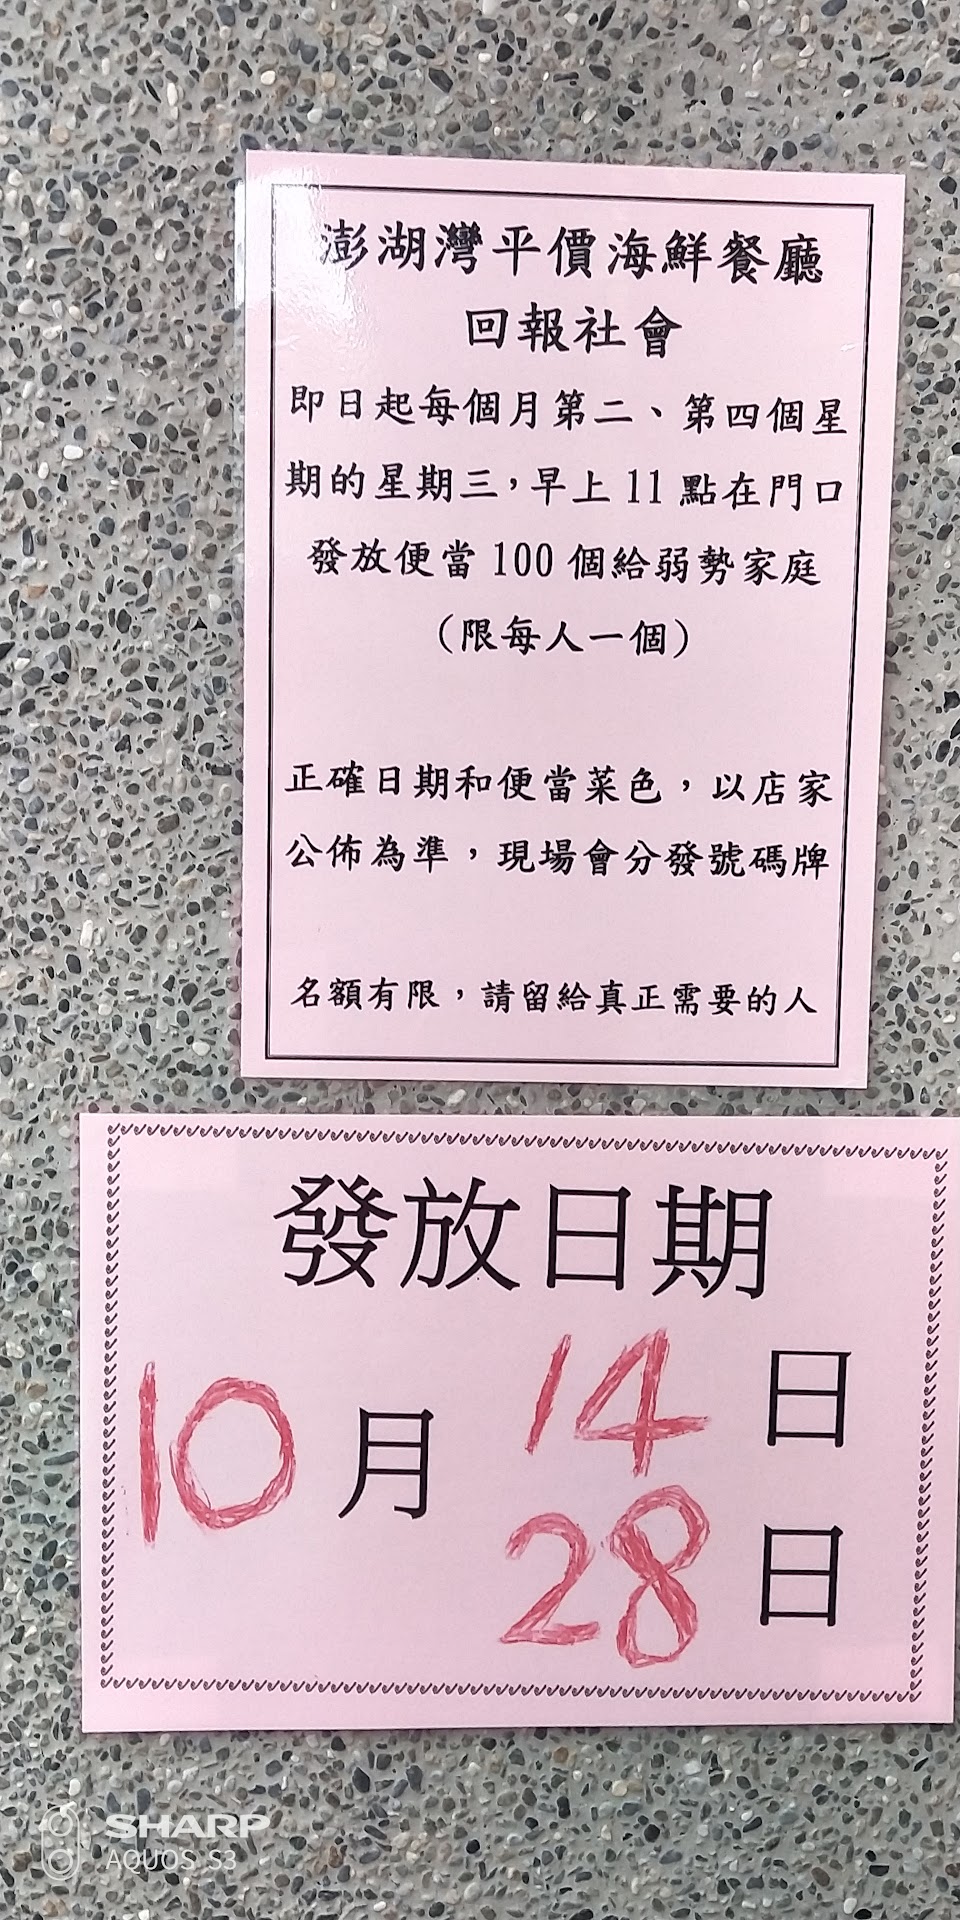 澎湖灣平價海鮮餐廳
回報社會
即日起每個月第二、第四個星
期的星期三,早上11點在門口
發放便當100個給弱勢家庭
(限每人一個)
正確日期和便當菜色,以店家
公佈為準,現場會分發號碼牌
名額有限,請留給真正需要的人
發放日期
10月14日
28日
SHARP
AQUOS S3